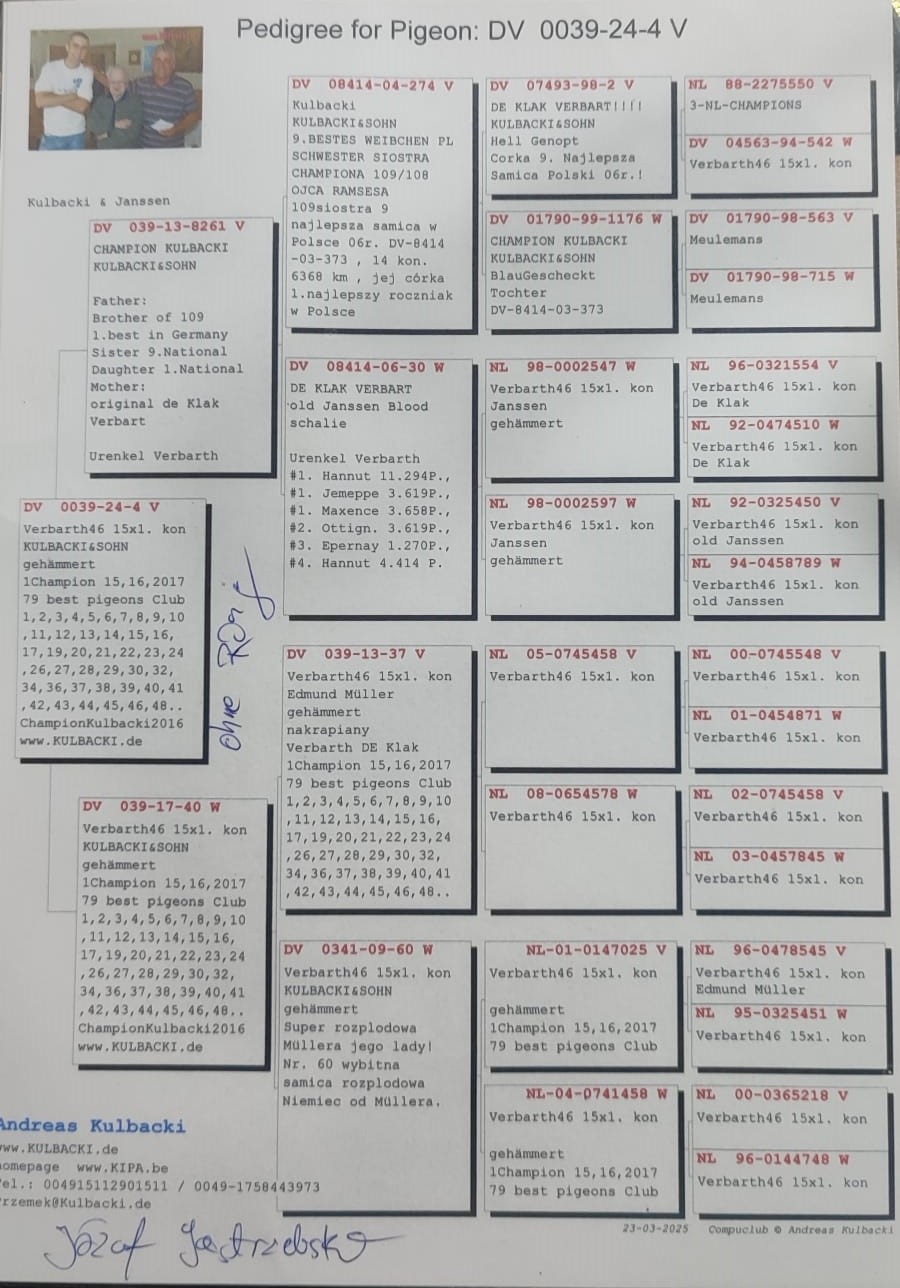 Pedigree for Pigeon: DV 0039-24-4 V
Kulbacki & Janssen
DV 039-13-8261 V
CHAMPION KULBACKI
KULBACKI&SOHN
Father:
Brother of 109
1.best in Germany
Sister 9.National
Daughter 1.National
Mother:
original de Klak
Verbart
Urenkel Verbarth
DV 0039-24-4 V
Verbarth46 15x1. kon
KULBACKI&SOHN
gehämmert
1Champion 15,16,2017
79 best pigeons Club
1,2,3,4,5,6,7,8,9,10
,11,12,13,14,15,16,
17,19,20,21,22,23,24
,26,27,28,29,30,32,
34,36,37,38,39,40,41
,42,43,44,45,46,48..
ChampionKulbacki2016
www.KULBACKI.de
ohne
DV 039-17-40 W
Verbarth46 15x1. kon
KULBACKI&SOHN
gehämmert
1Champion 15,16,2017
79 best pigeons Club
1,2,3,4,5,6,7,8,9,10
,11,12,13,14,15,16,
17,19,20,21,22,23,24
,26,27,28,29,30,32,
34,36,37,38,39,40,41
,42,43,44,45,46,48..
ChampionKulbacki2016
www.KULBACKI.de
DV 08414-04-274 V
Kulbacki
KULBACKI&SOHN
9.BESTES WEIBCHEN PL
SCHWESTER SIOSTRA
CHAMPIONA 109/108
OJCA RAMSESA
109siostra 9
najlepsza samica w
Polsce 06r. DV-8414
-03-373 , 14 kon.
6368 km , jej córka
1.najlepszy roczniak
w Polsce
DV 08414-06-30 W
DE KLAK VERBART
old Janssen Blood
schalie
Urenkel Verbarth
#1. Hannut 11.294P.,
#1. Jemeppe 3.619P.,
#1. Maxence 3.658P.,
#2. Ottign. 3.619P.,
#3. Epernay 1.270P.,
#4. Hannut 4.414 P.
DV 039-13-37 V
Verbarth46 15x1. kon
Edmund Müller
gehämmert
nakrapiany
Verbarth DE Klak
1Champion 15,16,2017
79 best pigeons Club
1,2,3,4,5,6,7,8,9,10
,11,12,13,14,15,16,
17,19,20,21,22,23,24
,26,27,28,29,30,32,
34,36,37,38,39,40,41
,42,43,44,45,46,48..
DV 0341-09-60 W
Verbarth46 15x1. kon
KULBACKI&SOHN
gehämmert
Super rozplodowa
Müllera jego lady!
Nr. 60 wybitna
samica rozplodowa
Niemiec od Müllera.
DV 07493-98-2 V
DE KLAK VERBART!!!!
KULBACKI&SOHN
Hell Genopt
Corka 9. Najlepsza
Samica Polski 06r.!
DV 01790-99-1176 W
CHAMPION KULBACKI
KULBACKI&SOHN
BlauGescheckt
Tochter
DV-8414-03-373
NL 98-0002547 W
Verbarth46 15x1. kon
Janssen
gehämmert
NL 98-0002597 W
Verbarth46 15x1. kon
Janssen
gehämmert
NL 05-0745458 V
Verbarth46 15x1. kon
NL 08-0654578 W
Verbarth46 15x1. kon
NL-01-0147025 V
Verbarth46 15x1. kon
gehämmert
1Champion 15,16,2017
79 best pigeons Club
NL-04-0741458 W
Verbarth46 15x1. kon
gehämmert
1Champion 15,16,2017
79 best pigeons Club
NL 88-2275550 V
3-NL-CHAMPIONS
DV 04563-94-542 W
Verbarth46 15x1. kon
DV 01790-98-563 V
Meulemans
DV 01790-98-715 W
Meulemans
NL 96-0321554 V
Verbarth46 15x1. kon
De Klak
NL 92-0474510 W
Verbarth46 15x1. kon
De Klak
NL 92-0325450 V
Verbarth46 15x1. kon
old Janssen
NL 94-0458789 W
Verbarth46 15x1. kon
old Janssen
NL 00-0745548 V
Verbarth46 15x1. kon
NL 01-0454871 W
Verbarth46 15x1. kon
NL 02-0745458 V
Verbarth46 15x1. kon
NL 03-0457845 W
Verbarth46 15x1. kon
NL 96-0478545 V
Verbarth46 15x1. kon
Edmund Müller
NL 95-0325451 W
Verbarth46 15x1. kon
NL 00-0365218 V
Verbarth46 15x1. kon
NL 96-0144748 W
Verbarth46 15x1. kon
Andreas Kulbacki
www.KULBACKI.de
homepage www.KIPA.be
Tel.: 004915112901511 / 0049-1758443973
rzemek@Kulbacki.de
23-03-2025 Compuclub © Andreas Kulbacki
Józef Jastrzebski